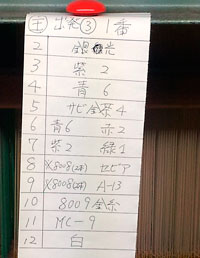 ㊤ 出発 ③ 1番
2 銀 光
3 紫 2
4 青 6
5 サビ金茶 4
6 青6 赤2
7 紫2 緑1
8 X8008(2本) セピア
9 X8008(2本) A-13
10 8009 金糸
11 MC-9
12 白